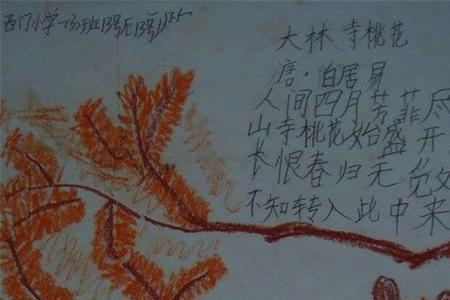 西门小学一(3)班13号
大林寺桃花
唐·白居易
人间四月芳菲尽
山寺桃花始盛开
长恨春归无觅
不知转入此中来